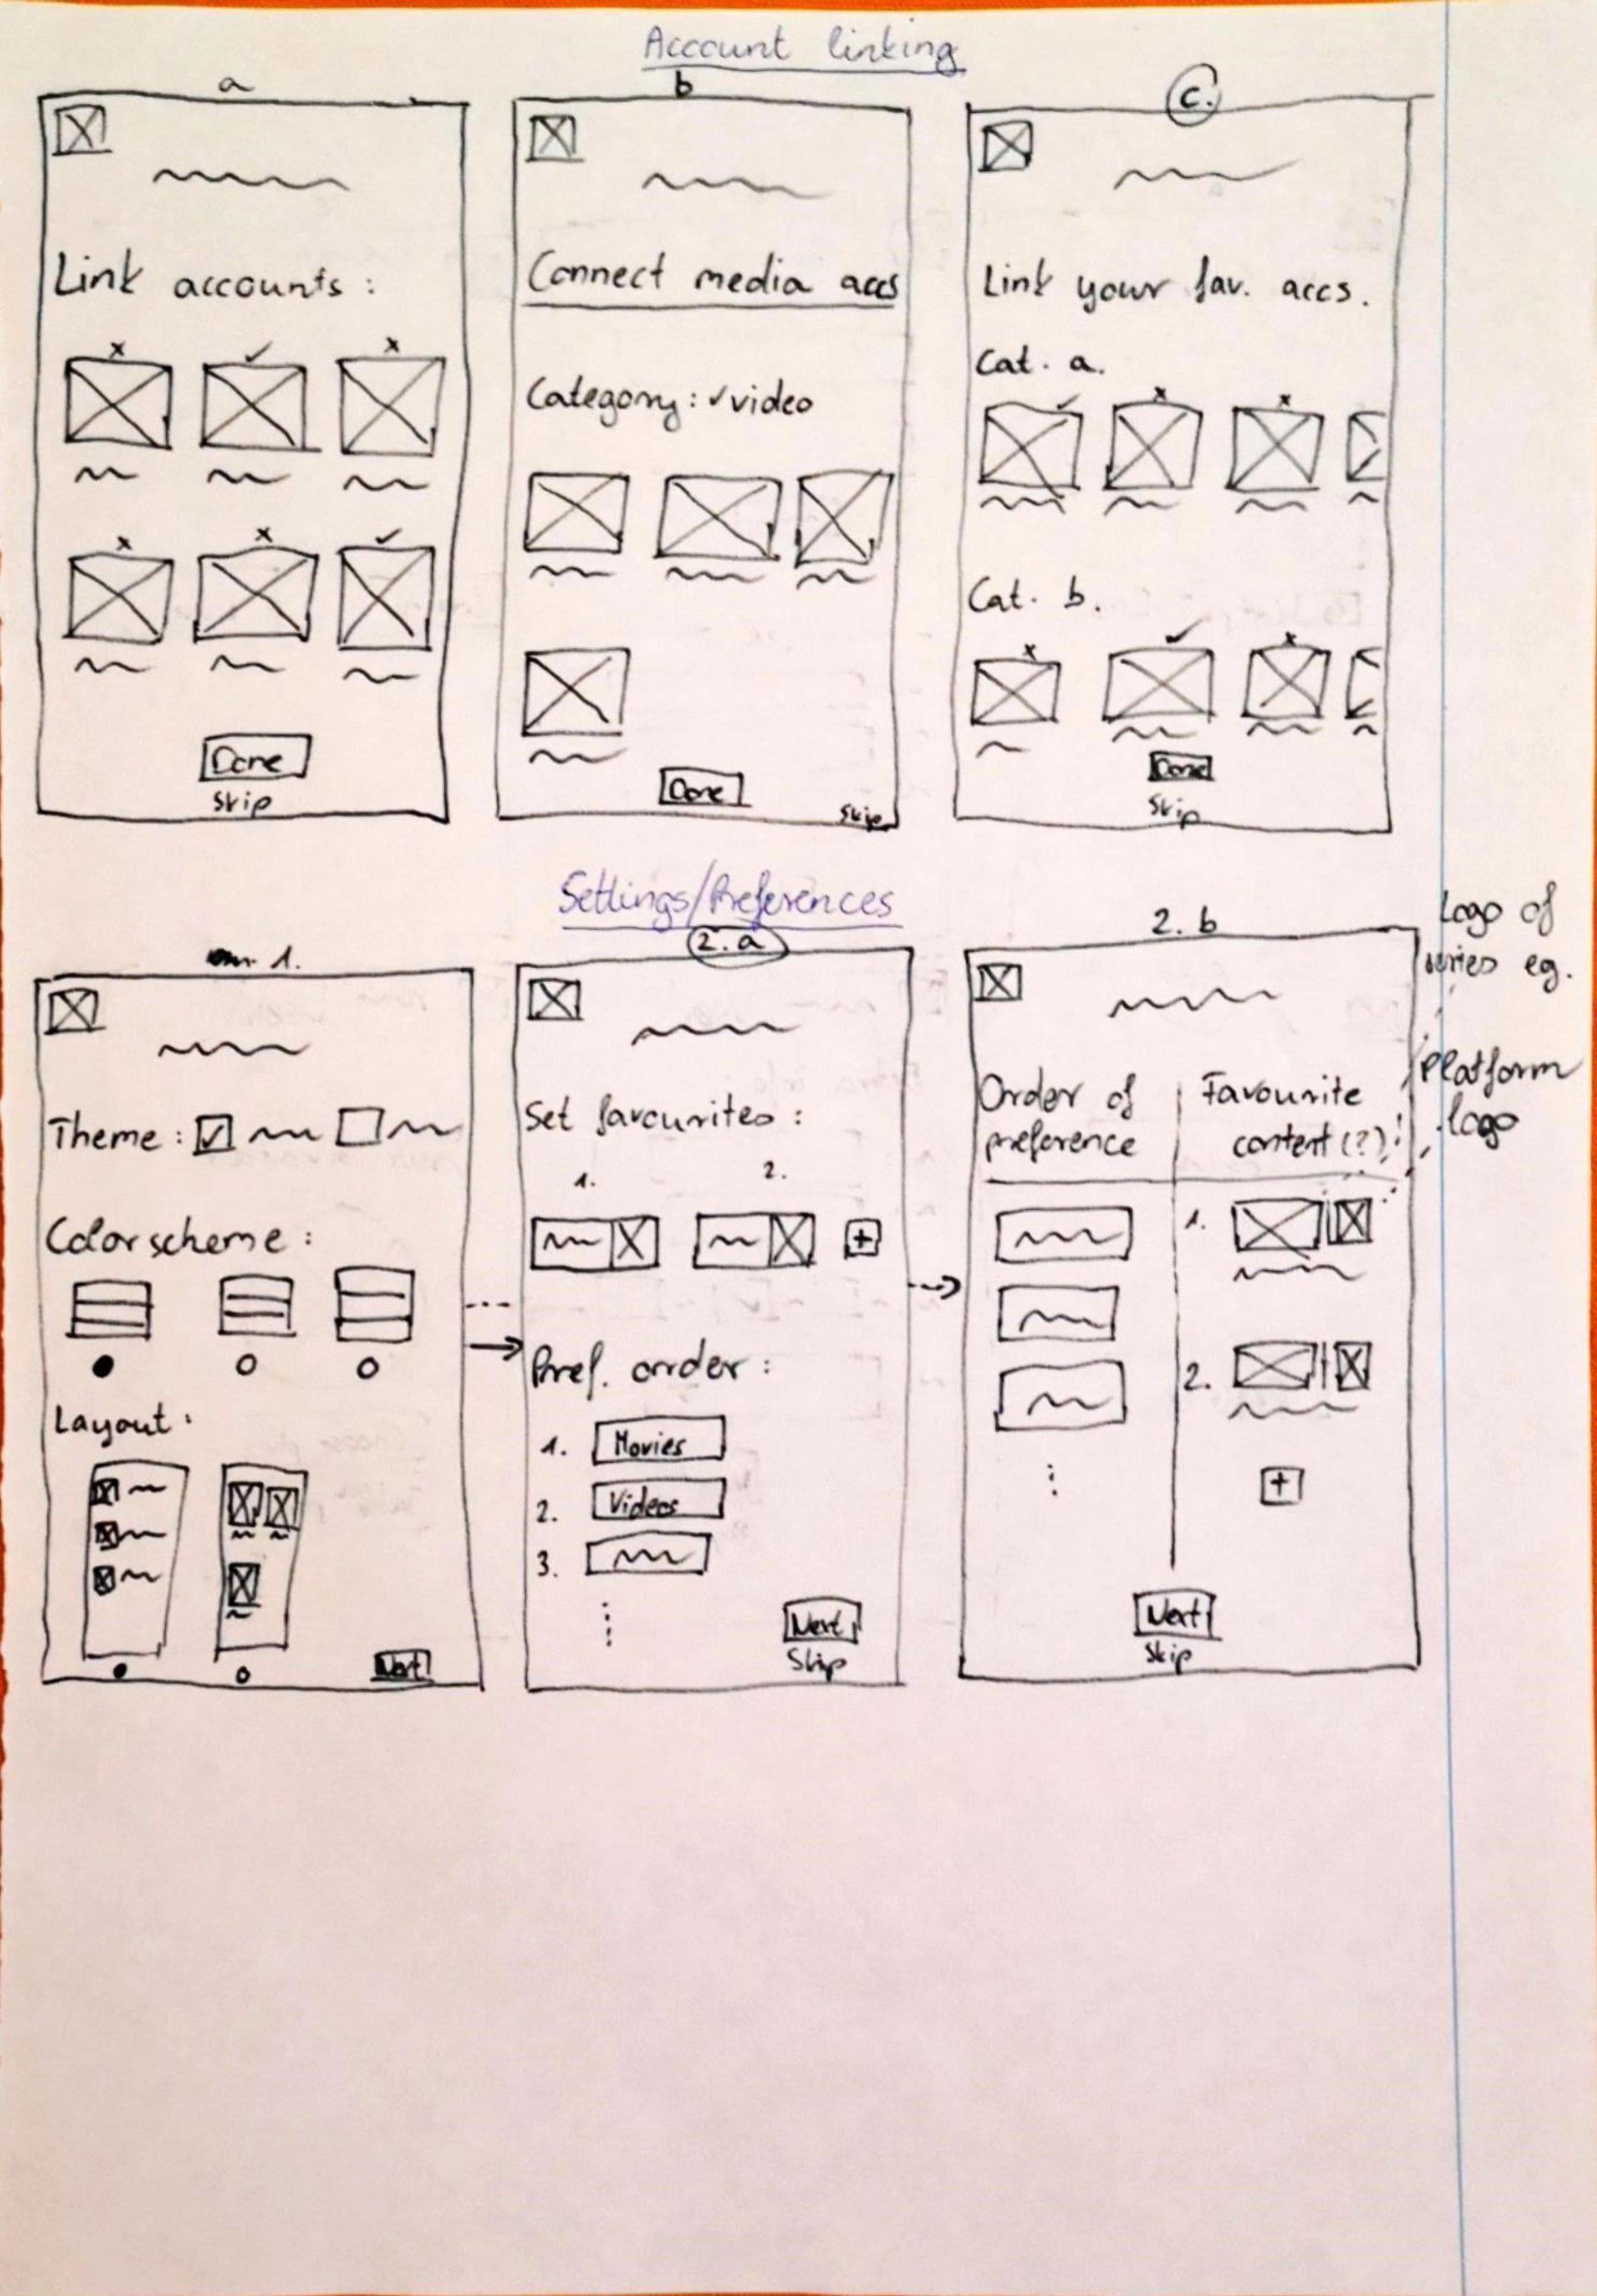 Account linking
a
b
c.
Link accounts :
Done
Skip
Connect media accs
Category: ✓video
Done
Skip
Link your fav. accs.
Cat. a.
Cat. b.
Done
Skip
Settings/Preferences
1.
Theme :
Colorscheme :
Layout :
Next
2. a
Set favourites :
1. 2.
+
Pref. order :
1. Movies
2. Videos
3.
Next
Skip
2. b
Order of
preference
Favourite
content (?)
1.
2.
+
Next
Skip
Logo of
series eg.
Platform
logo